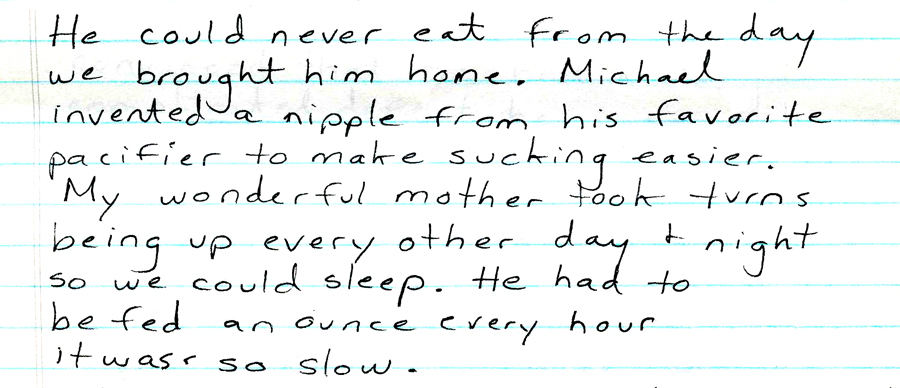 He could never eat from the day
we brought him home. Michael
invented a nipple from his favorite
pacifier to make sucking easier.
My wonderful mother took turns
being up every other day & night
so we could sleep. He had to
be fed an ounce every hour
it was so slow.